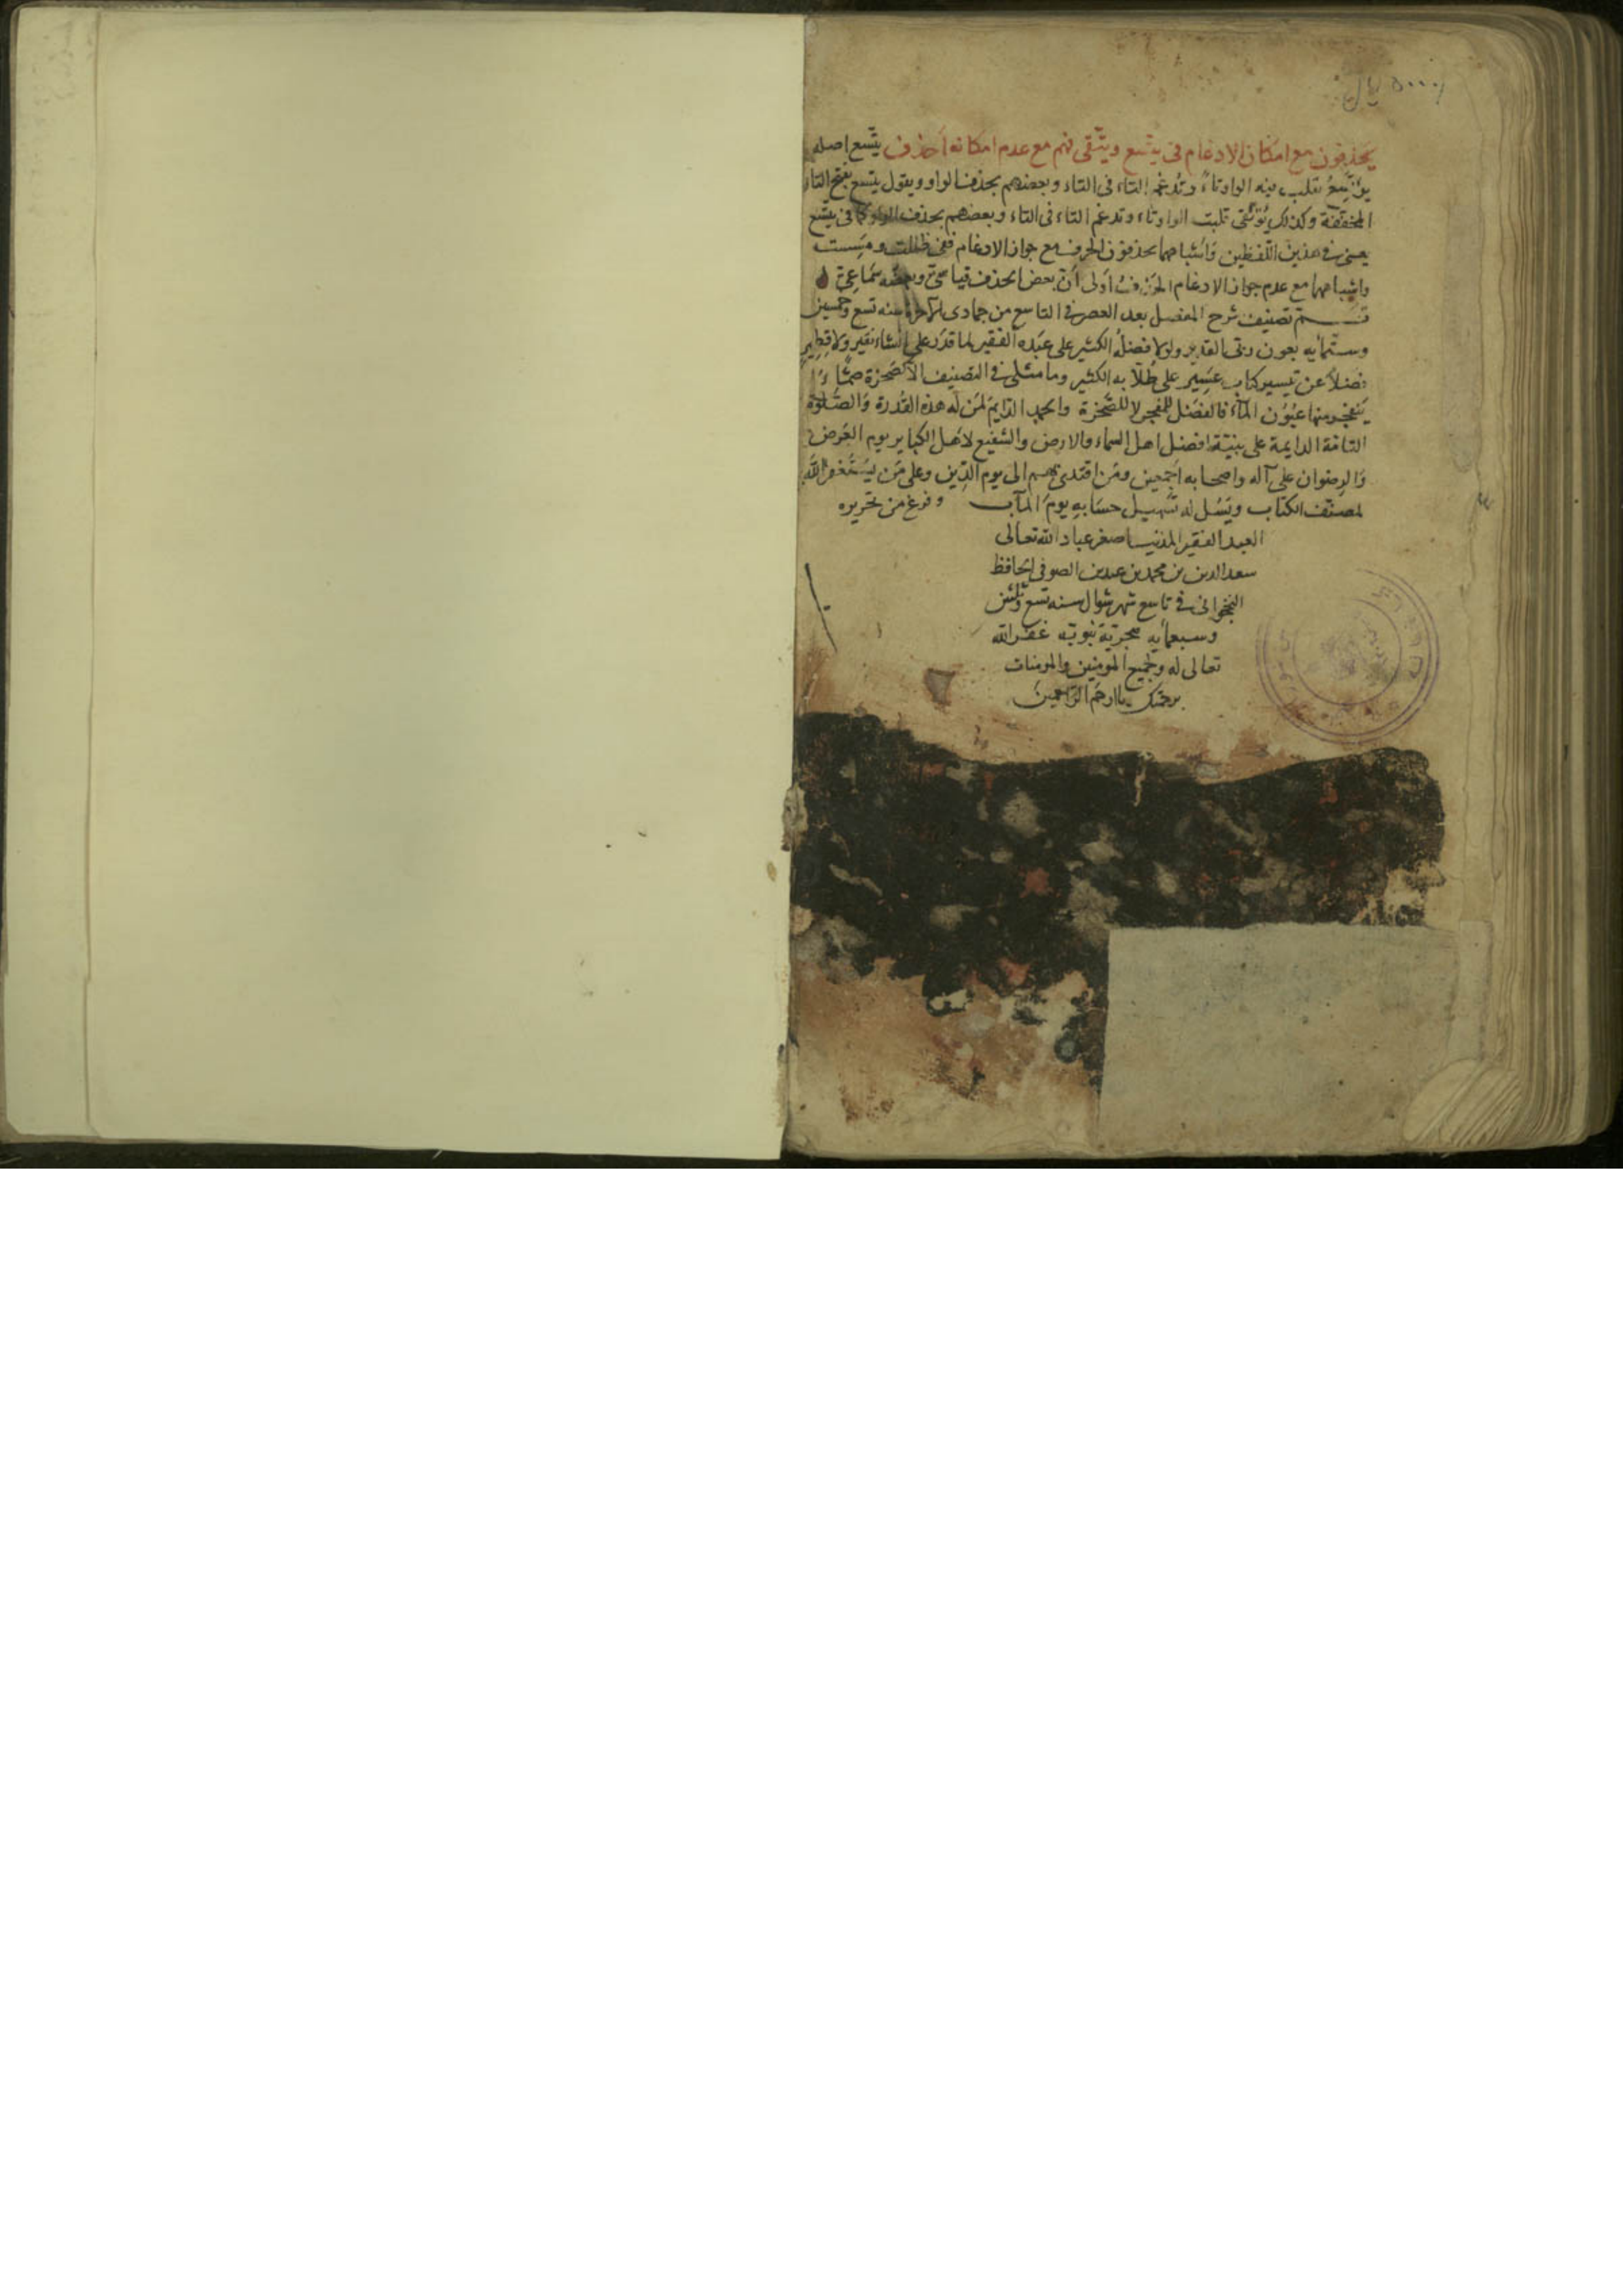 يحذفون مع امكان الادغام فى يتسع ويتقى فهم مع عدم امكانه احذف يتسع اصله
يوتسع تقلب فيه الواو تاءً وتُدغم التاء فى التاء وبعضهم يحذف الواو ويقول يتسع بفتح التاء
المخففة وكذلك يوتقى قلبت الواو تاء وتدغم التاء فى التاء وبعضهم يحذف الواو كما فى يتسع
يعنى فى هذين اللفظين واشباههما يحذفون الحرف مع جواز الادغام ففى ظللت ومسست
واشباههما مع عدم جواز الادغام الحذف اولى لان بعض الحذف قياسى وبعضه سماعى
تم تصنيف شرح المفصل بعد العصر فى التاسع من جمادى الاخرة سنه تسع وخمسين
وستمايه بعون ربى القدير ولولا فضله الكثير على عبده الفقير لما قدر على انشاء نقير ولا قطمير
فضلاً عن تيسير كتاب عسير على طلابه الكثير وما مثلى فى التصنيف الا كصخرة صماء
ينفجر منها عيون الماء فالفضل للمفجر لا للصخرة والحمد الدايم لمن له هذه القدرة والصلوة
التامة الدايمة على نبيه افضل اهل السماء والارض والشفيع لاهل الكباير يوم العرض
والرضوان على آله واصحابه اجمعين ومن اقتدى بهم الى يوم الدين وعلى من يستغفر الله
لمصنف الكتاب ويسل له تسهيل حسابه يوم المآب وفرغ من تحريره
العبد الفقير المذنب اصغر عباد الله تعالى
سعد الدين بن محمد بن الصوفى الحافظ
النخجوانى فى تاسع شهر شوال سنه تسع وثلثين
وسبعمايه هجرية نبويه غفر الله
تعالى له ولجميع المومنين والمومنات
برحمتك يا ارحم الراحمين